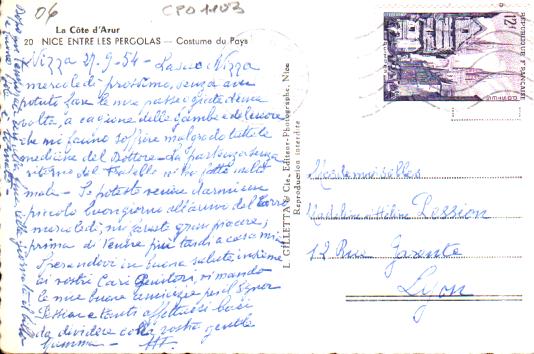 06
CPO1103
La Côte d'Azur
20 NICE ENTRE LES PERGOLAS — Costume du Pays
Nizza 27-9-54 - Lascio Nizza
mercoledi prossimo, senza aver
potuto fare le mie passeggiate di una
volta, a cagione delle gambe e del cuore
che mi fanno soffrire malgrado tutte le
medicine del Dottore - La partenza senza
ritorno del Fratello mi ha fatto molto
male - Se poteste venire a darmi un
piccolo buongiorno all'arrivo del
mercoledi, mi fareste gran piacere,
prima di venire più tardi a casa mia
Sperandovi in buona salute, insieme
ai vostri Cari Genitori, vi mando
le mie buone amicizie pel Signor
Pession e tanti affettuosi baci
da dividere colla vostra gentile
Mamma -
L. GILLETTA & Cie, Editeur-Photographe, Nice
Reproduction interdite
REPUBLIQUE FRANÇAISE
12F
QUIMPER
Mesdemoiselles
Madeleine et Hélène Pession
12 Rue
Lyon